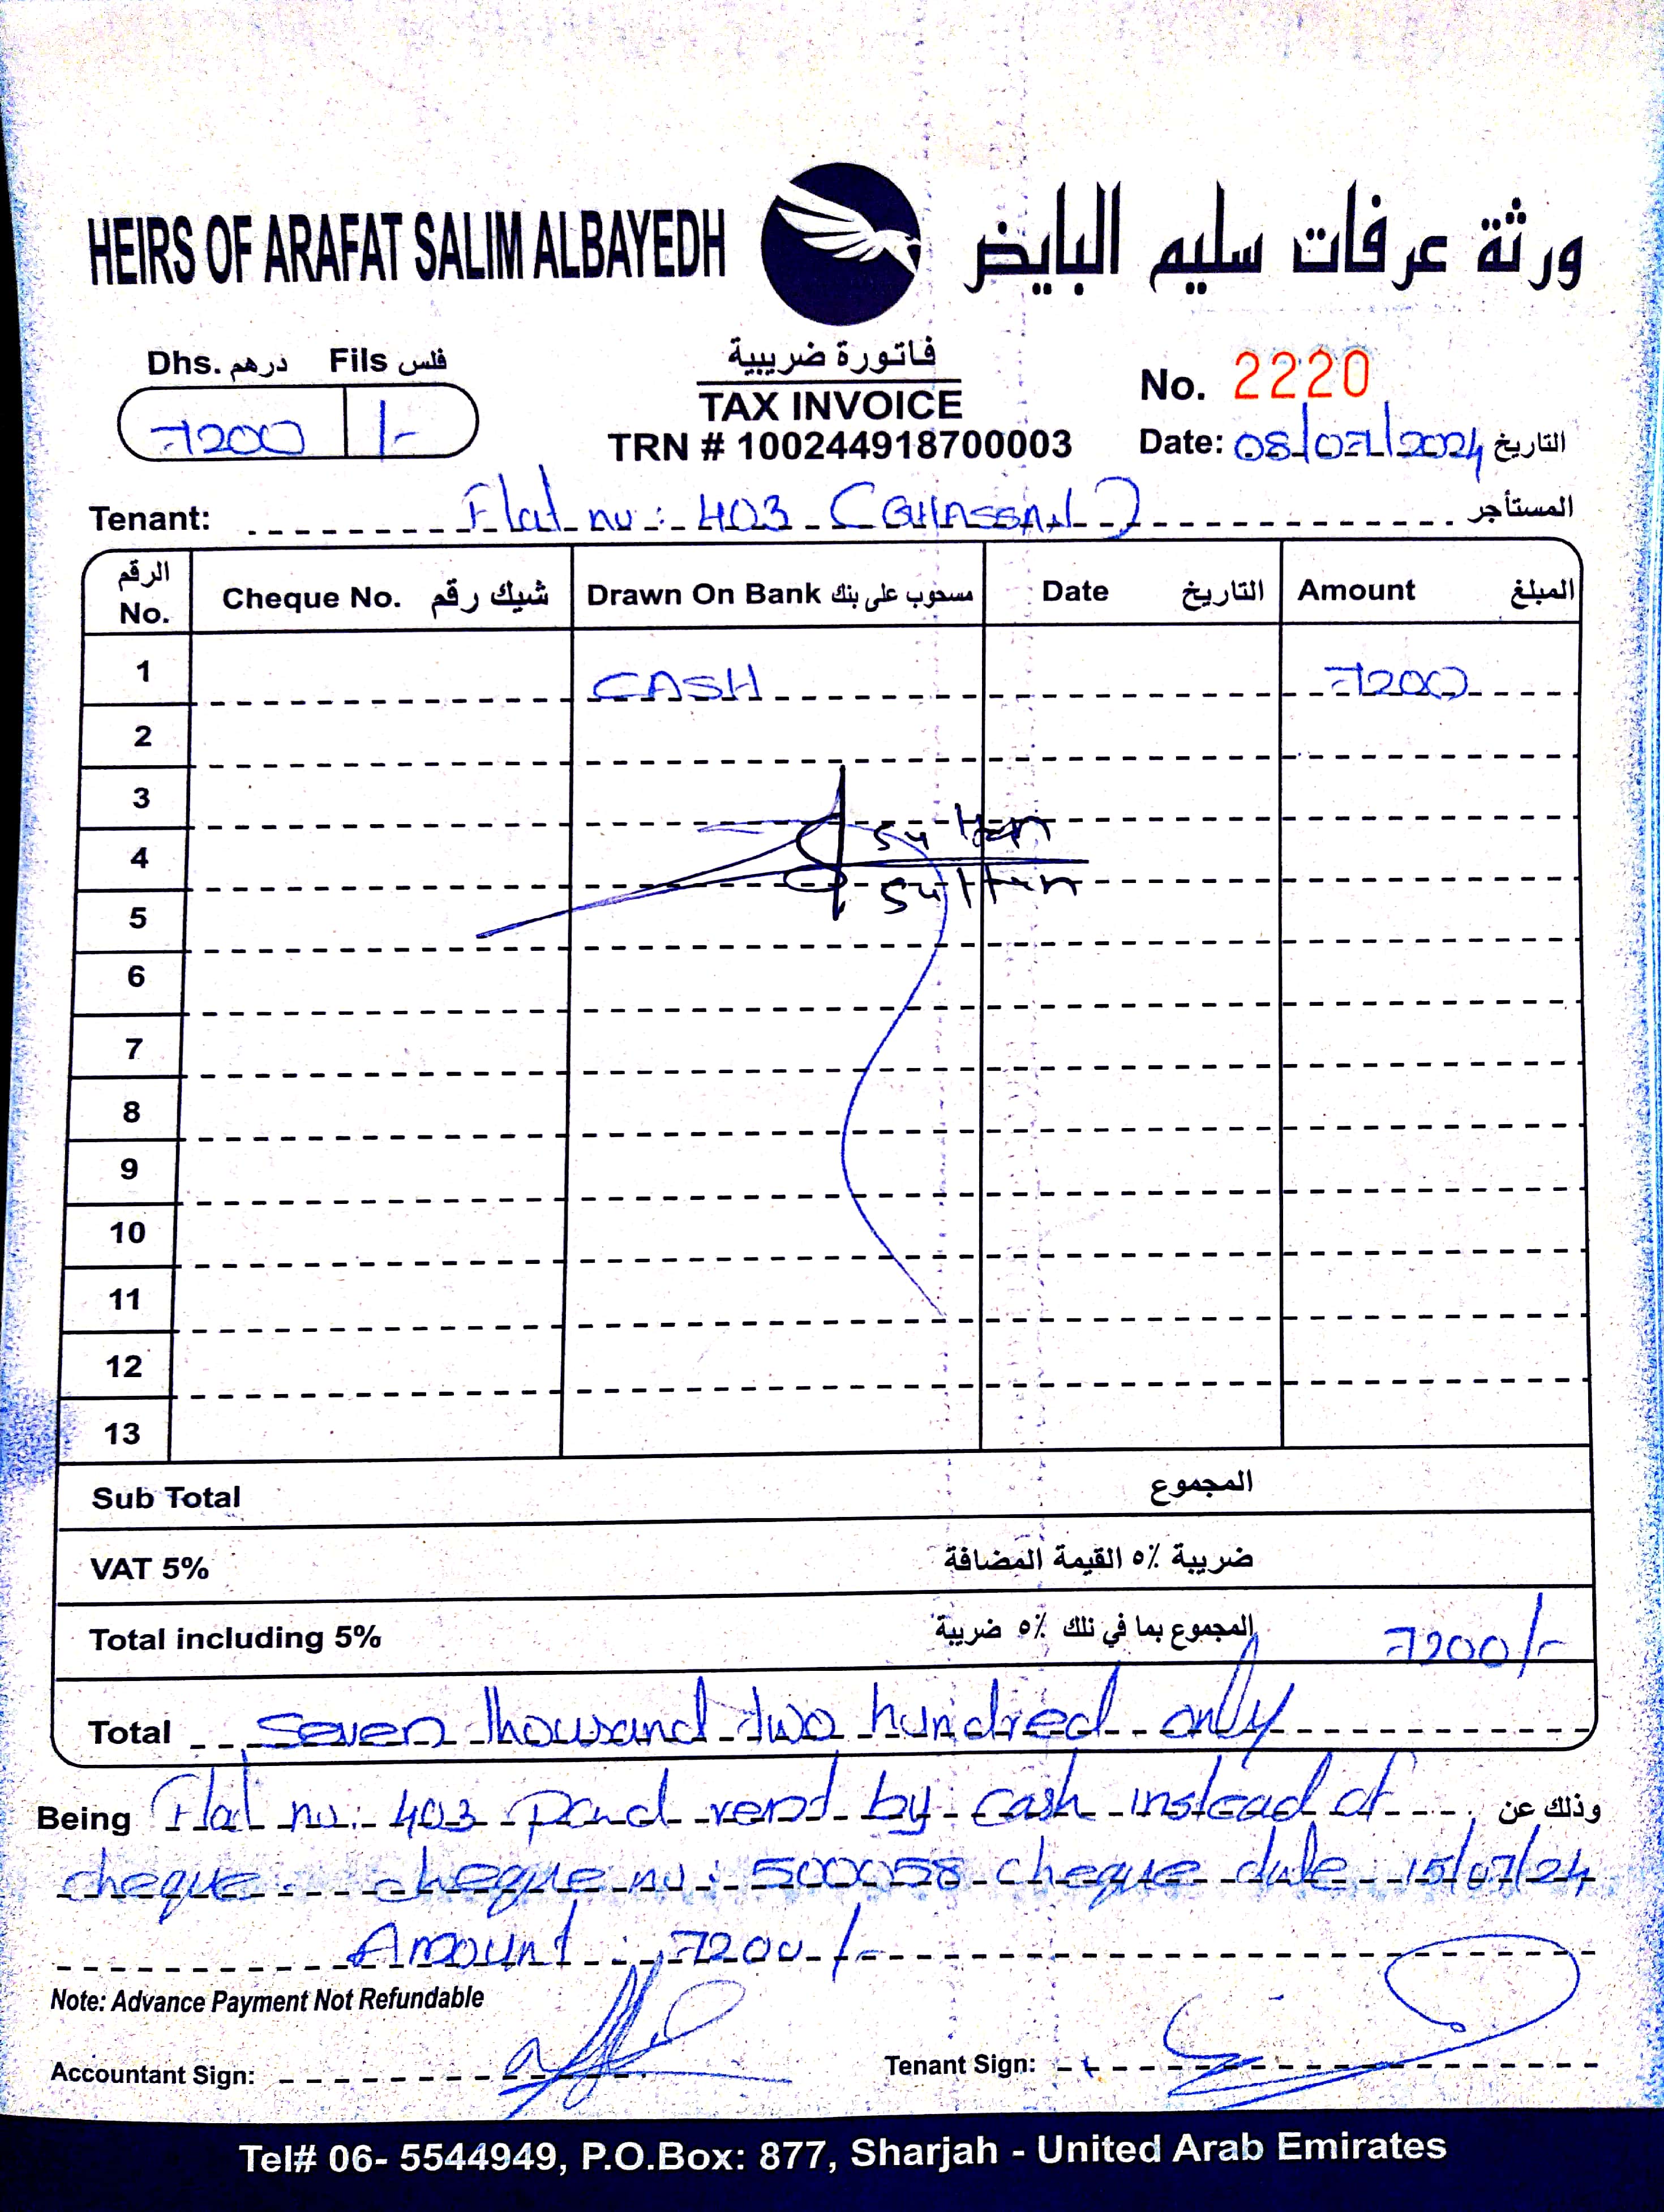 HEIRS OF ARAFAT SALIM ALBAYEDH ورثة عرفات سليم البايض
Dhs. درهم Fils فلس
7200 /-
فاتورة ضريبية
TAX INVOICE
TRN # 100244918700003
No. 2220
Date: 08/07/2024 التاريخ
Tenant: Flat no: 403 (GHASSAN) المستأجر
الرقم No. Cheque No. شيك رقم Drawn On Bank مسحوب على بنك Date التاريخ Amount المبلغ
1 CASH 7200
2
3
4 Sultan
5 Sultan
6
7
8
9
10
11
12
13
Sub Total المجموع
VAT 5% ضريبة ٥٪ القيمة المضافة
Total including 5% المجموع بما في ذلك ٥٪ ضريبة 7200/-
Total seven thousand two hundred only
Being Flat no: 403 paid rent by cash instead of وذلك عن
cheque cheque no: 500058 cheque date 15/07/24
Amount : 7200/-
Note: Advance Payment Not Refundable
Accountant Sign: Tenant Sign:
Tel# 06- 5544949, P.O.Box: 877, Sharjah - United Arab Emirates